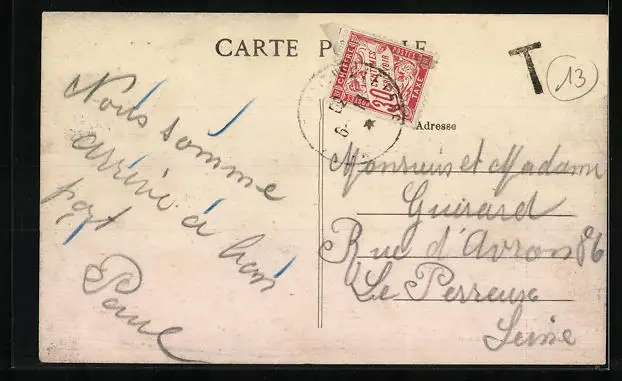 CARTE POSTALE
T
13
CHIFFRE
POSTES
TAXE
30
CENTIMES
Adresse
Nous somme
arrivé à bon
port
Paul
Monsieur et Madame
Guérard
Rue d'Avron 86
Le Perreux
Seine